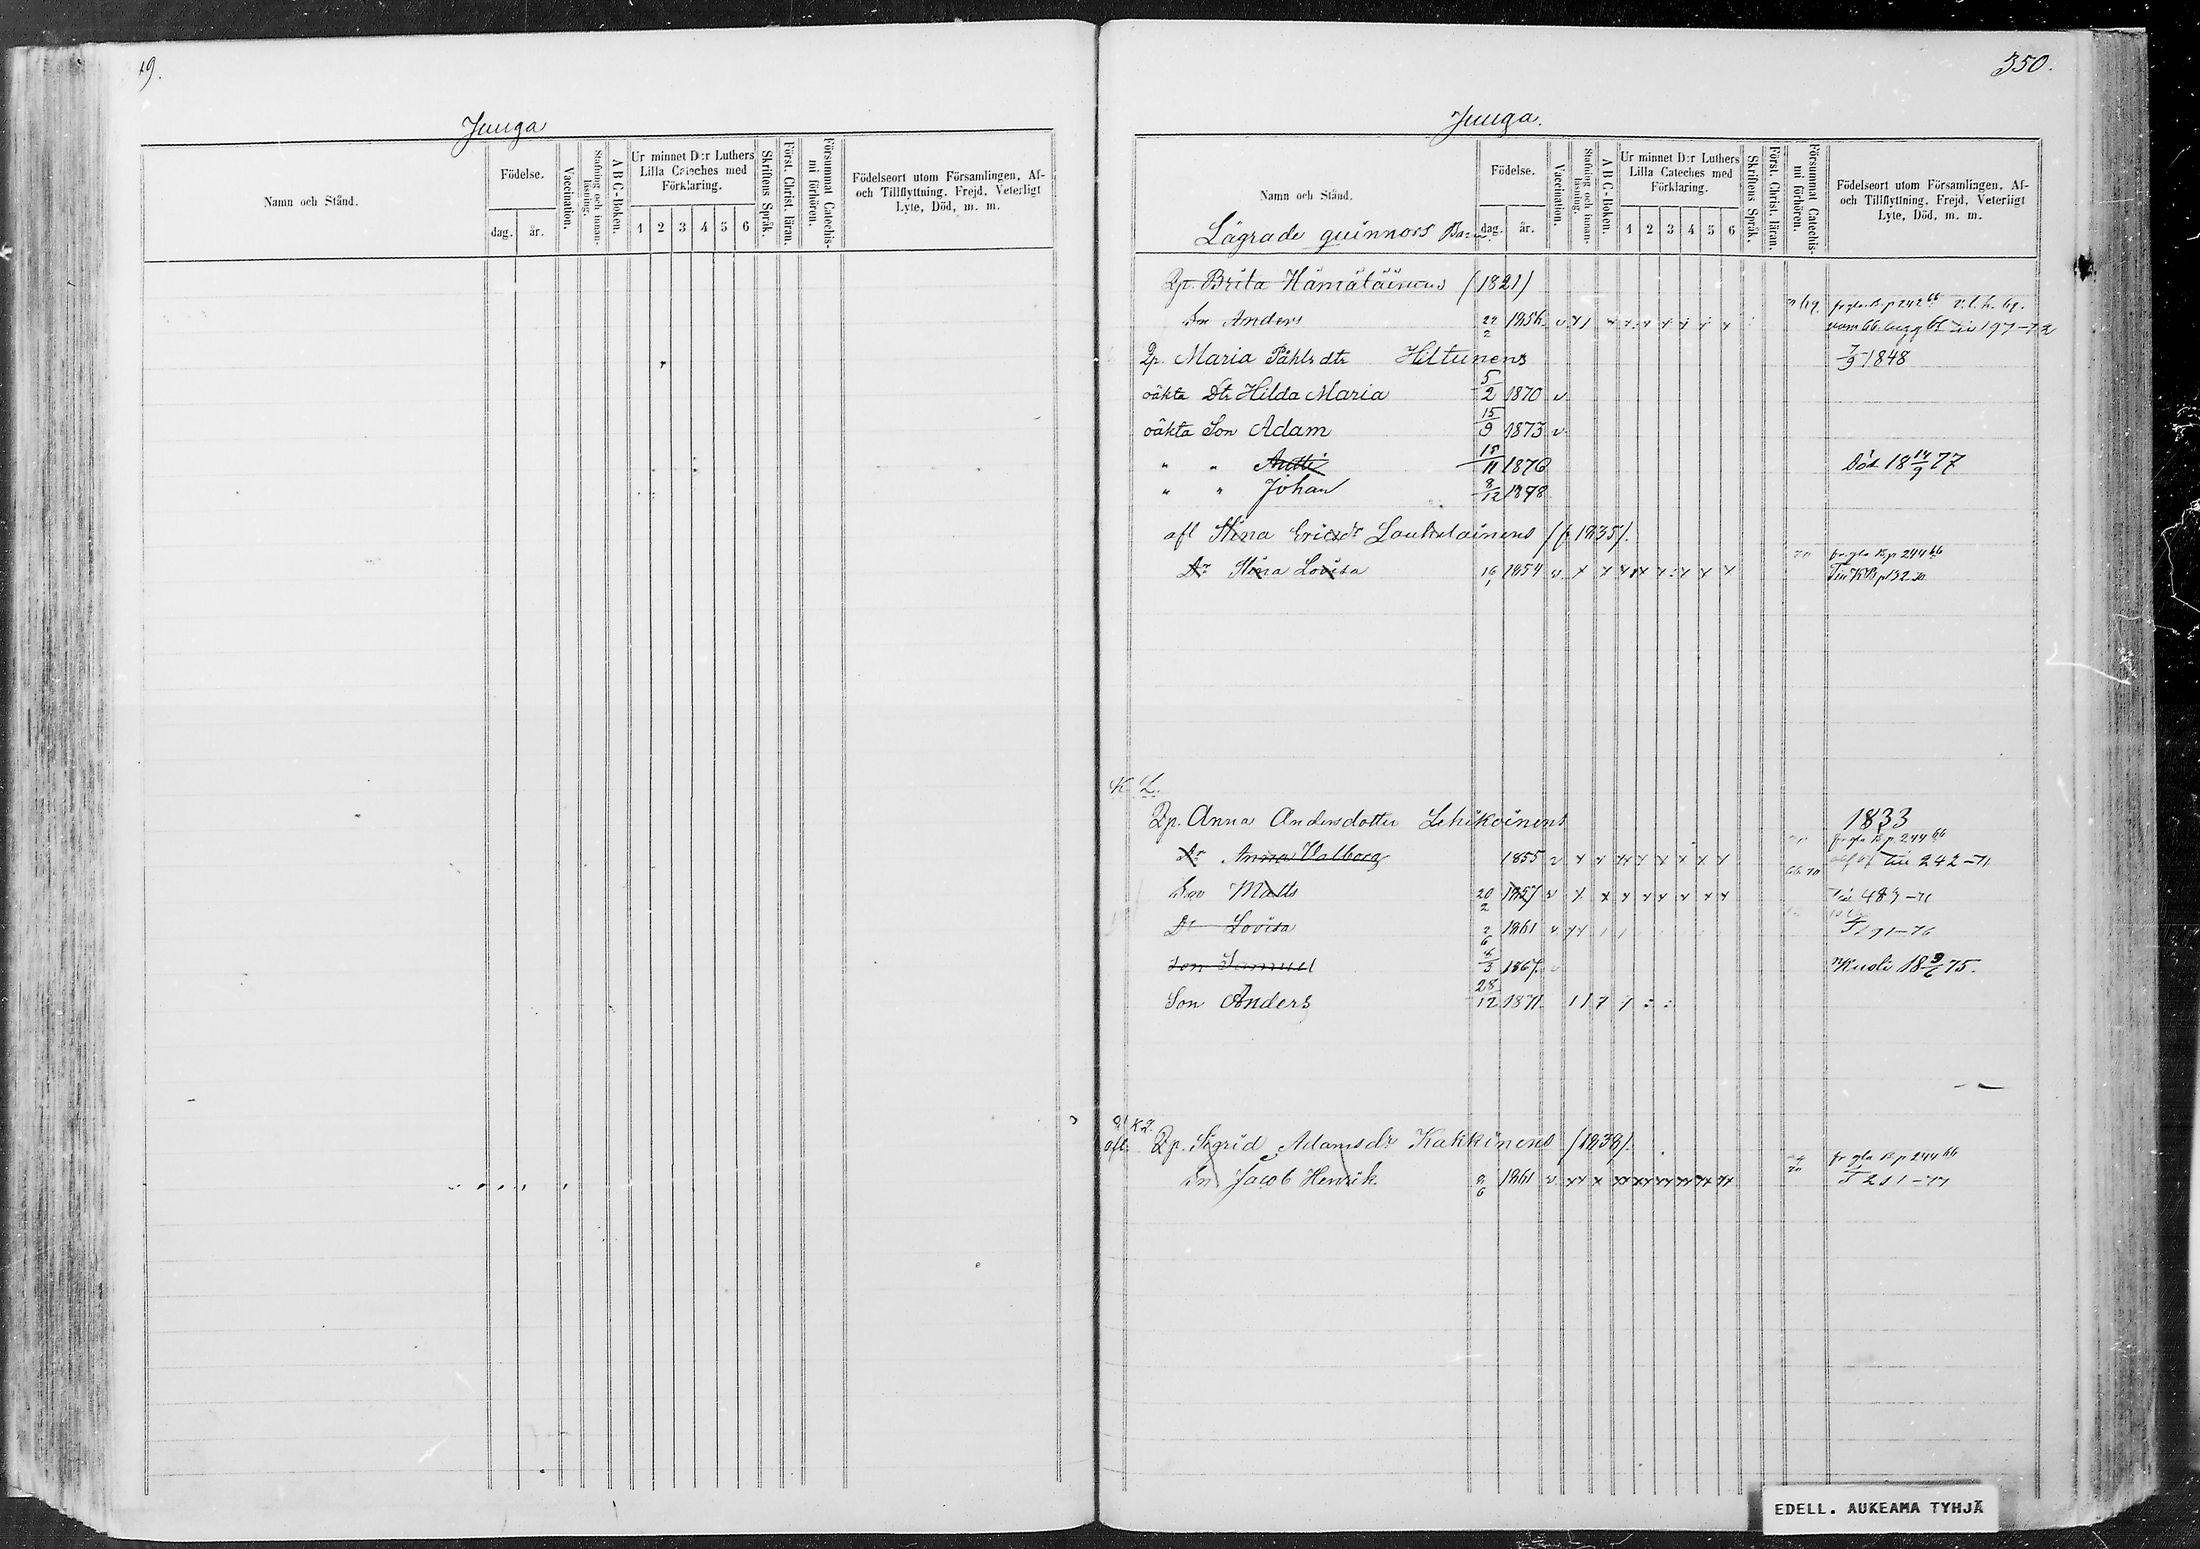 19.
Juuga
Namn och Stånd.
Födelse.
dag.
år.
Vaccination.
Stafning och innan-
läsning.
A B C-Boken.
Ur minnet D:r Luthers
Lilla Cateches med
Förklaring.
1 2 3 4 5 6
Skriftens Språk.
Först. Christ. läran.
Försummat Catechis-
mi förhören.
Födelseort utom Församlingen, Af-
och Tillflyttning, Frejd, Veterligt
Lyte, Död, m. m.
350.
Juuga.
Namn och Stånd.
Födelse.
dag.
år.
Vaccination.
Stafning och innan-
läsning.
A B C-Boken.
Ur minnet D:r Luthers
Lilla Cateches med
Förklaring.
1 2 3 4 5 6
Skriftens Språk.
Först. Christ. läran.
Försummat Catechis-
mi förhören.
Födelseort utom Församlingen, Af-
och Tillflyttning, Frejd, Veterligt
Lyte, Död, m. m.
Lägrade quinnors Barn
Qp. Brita Hämäläinens (1821)
Sn Anders 1856
Qp. Maria Påhlsdtr Hiltunens 7/9 1848
oäkta Dtr Hilda Maria 5/2 1870 v
oäkta Son Adam 15/9 1873 v
" " Antti 18/11 1876 Död 18 14/9 77
" " Johan 8/12 1878
afl Stina Ericsdr Laukkainens (f 1835).
Dr Stina Lovisa 16/1 1854 v x x
K L.
Qp. Anna Andersdotter Lehikoinens 1833
fr gla B. p. 244 66
Dr Anna Valborg 1855 v x x 242-71
Son Matts 20/2 1857 v x x
Dr Lovisa 2/6 1861 v
Son Samuel 8/3 1867 Kuoli 18 9/6 75.
Son Anders 28/12 1871
K L.
afl. Qp. Sigrid Adamsdr Kakkinens (1838).
fr gla B p 244 66
Sn Jacob Henrik 1861 v
EDELL. AUKEAMA TYHJÄ